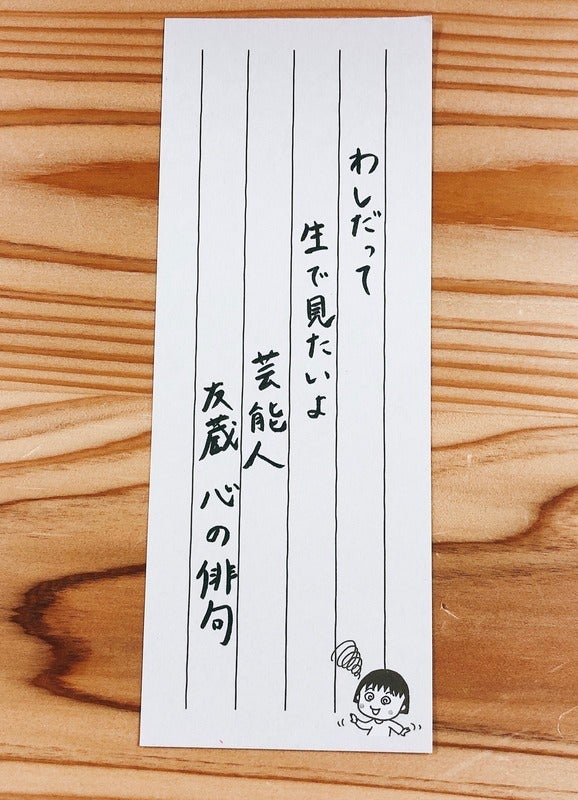 わしだって
生で見たいよ
芸能人
友蔵 心の俳句